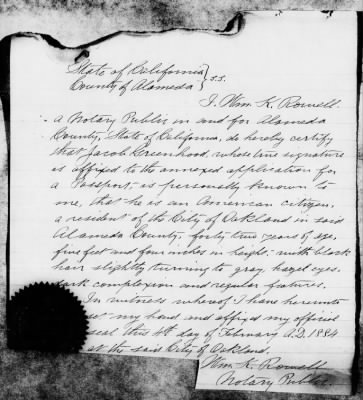 State of California } s.s.
County of Alameda
I. Wm K. Rowell.
a Notary Public in and for Alameda
County, State of California, do hereby certify
that Jacob Greenhood, whose true signature
is affixed to the annexed application for
a Passport, is personally known to
me, that he is an American citizen,
a resident of the City of Oakland in said
Alameda County, forty two years of age,
five feet and four inches in height, with black
hair slightly turning to gray, hazel eyes,
dark complexion and regular features.
In witness whereof I have hereunto
set my hand and affixed my official
seal this 4th day of February A.D. 1884
at the said City of Oakland.
Wm K. Rowell
Notary Public.